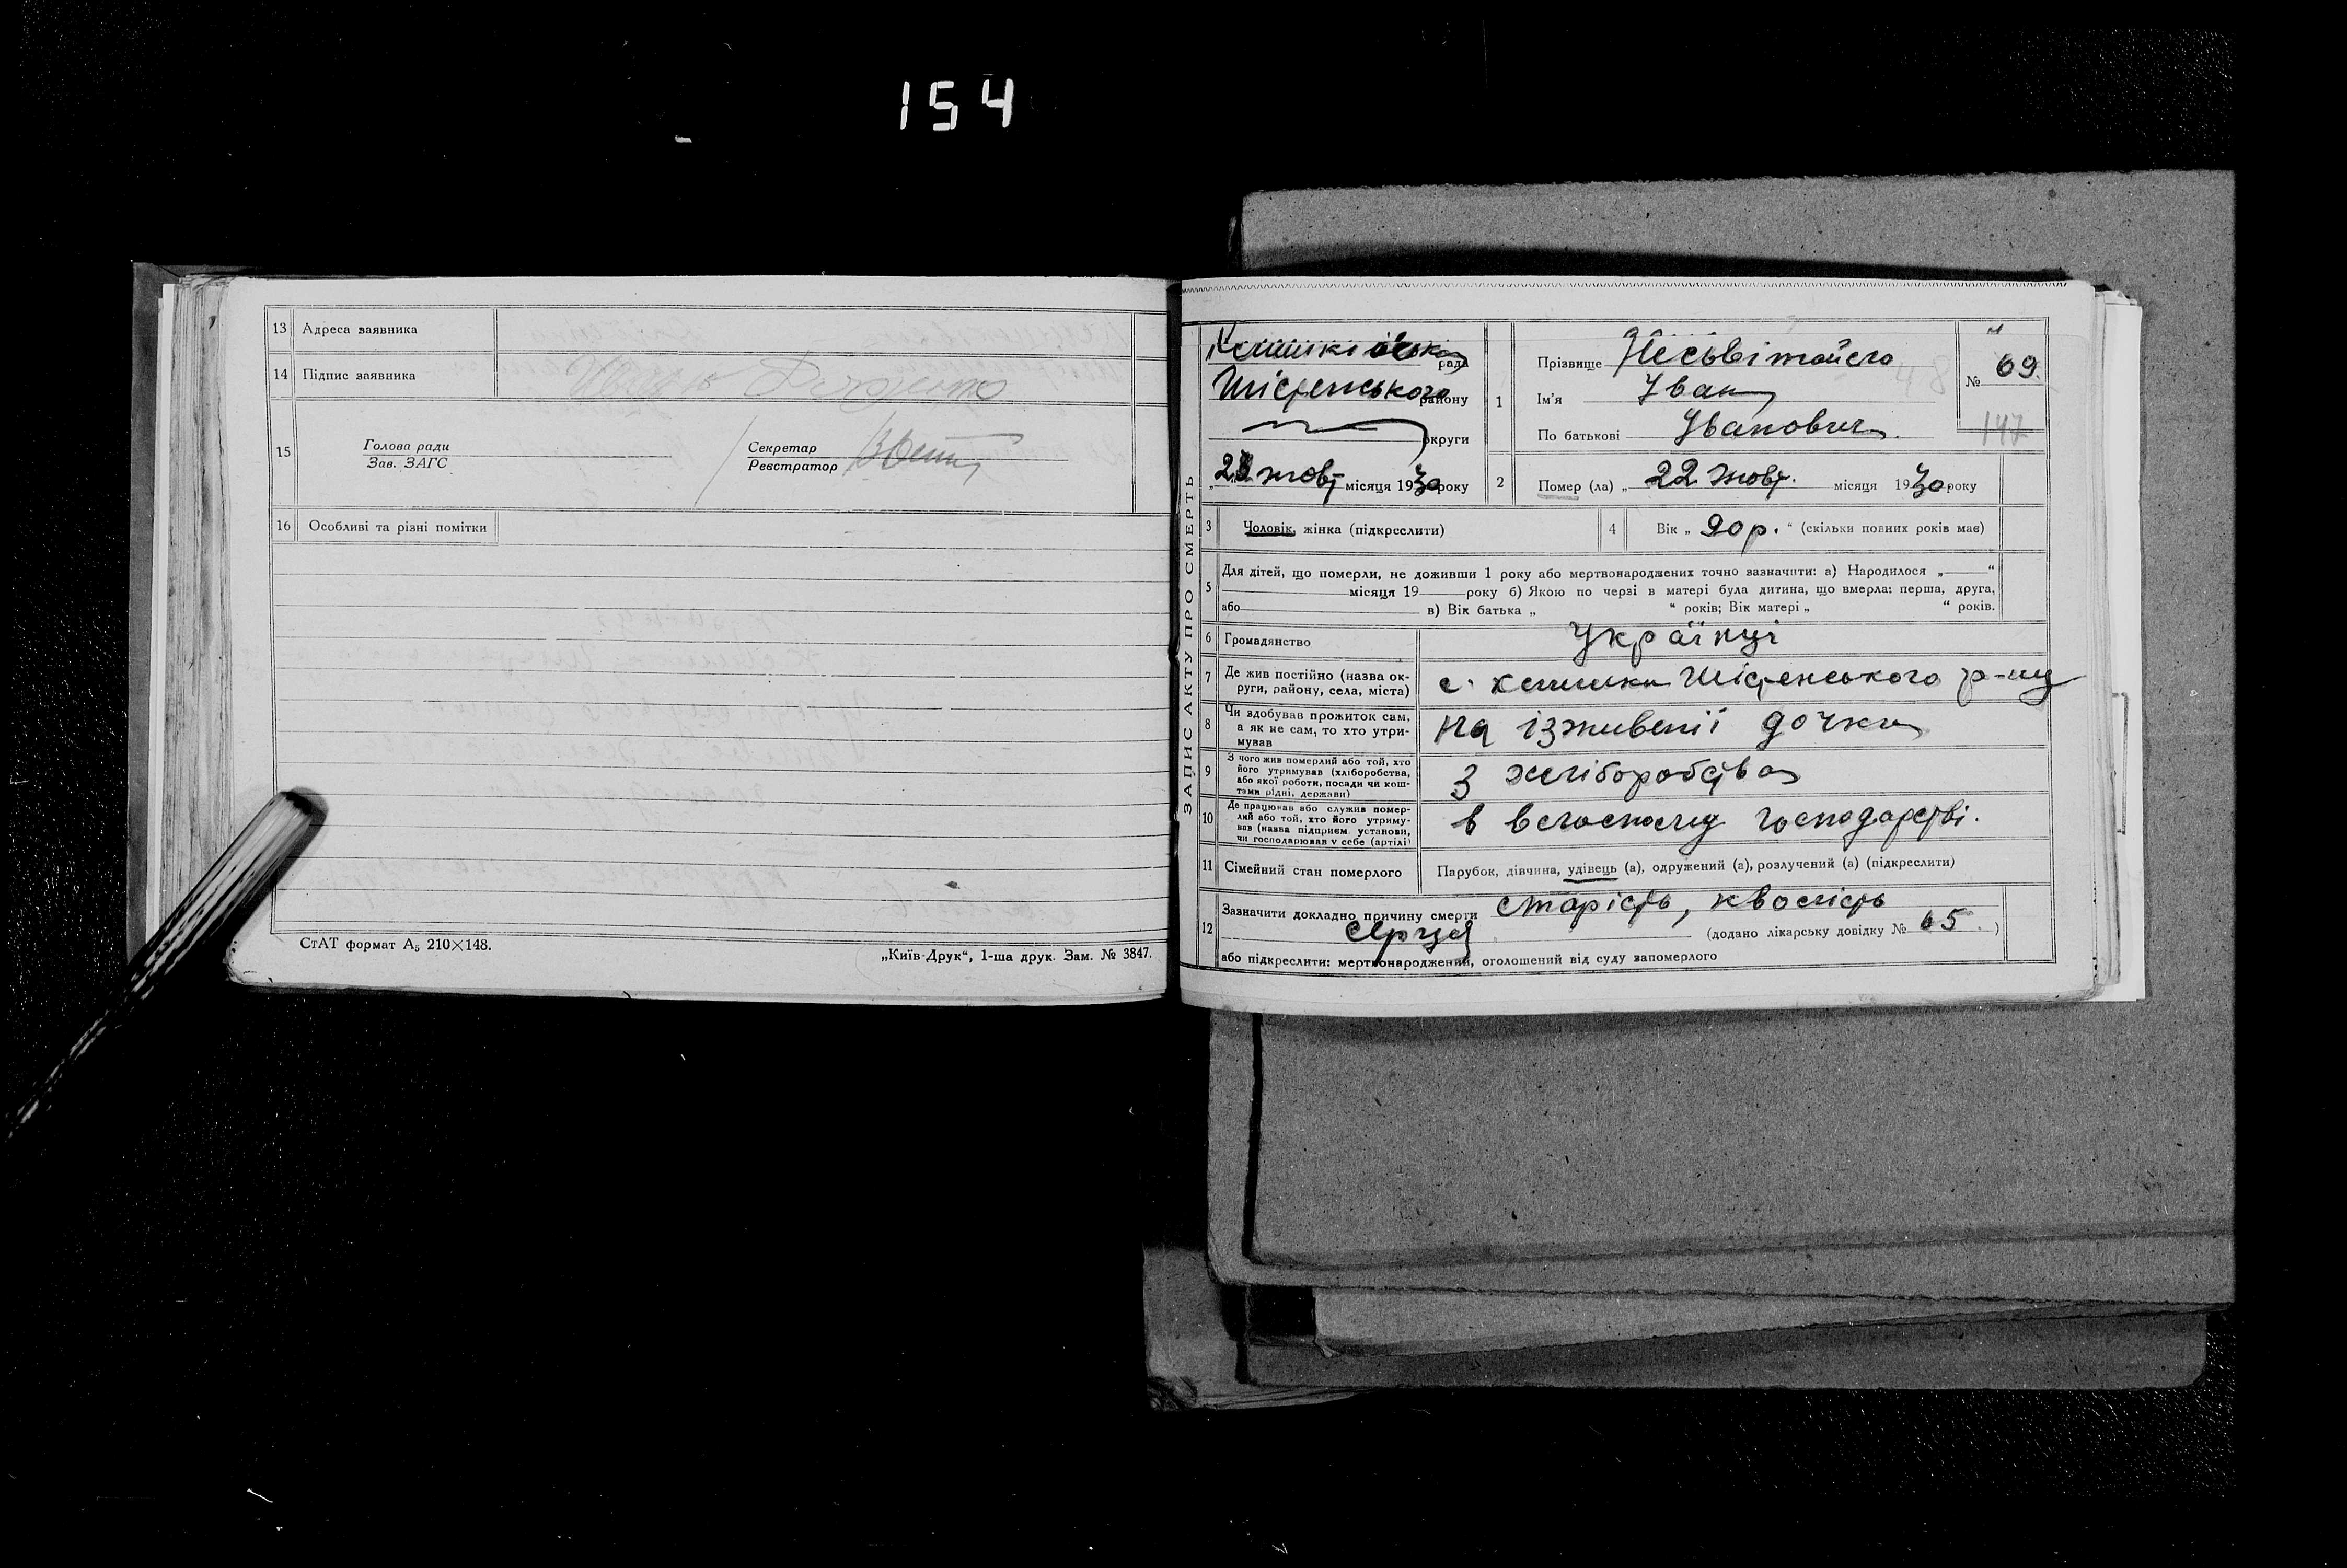 154
13 Адреса заявника
14 Підпис заявника
15 Голова ради
Зав. ЗАГС
Секретар
Реєстратор
16 Особливі та різні помітки
СтАТ формат А5 210×148.
„Київ-Друк“, 1-ша друк. Зам. № 3847.
ЗАПИС АКТУ ПРО СМЕРТЬ
рада
Шістенського району
округи
жовт місяця 1930 року
1 Прізвище
Ім'я Іван
По батькові Іванович
№ 69
147
2 Помер (ла) „ 22 жовт. місяця 1930 року
3 Чоловік, жінка (підкреслити)
4 Вік „ 90 р. “ (скільки повних років має)
5 Для дітей, що померли, не доживши 1 року або мертвонароджених точно зазначити: а) Народилося „ “
місяця 19 року б) Якою по черзі в матері була дитина, що вмерла: перша, друга,
або в) Вік батька „ “ років; Вік матері „ “ років.
6 Громадянство Українці
7 Де жив постійно (назва ок-
руги, району, села, міста) с. Шістенського р-ну
8 Чи здобував прожиток сам,
а як не сам, то хто утри-
мував на ізживенії дочки
9 З чого жив померлий або той, хто
його утримував (хліборобства,
або якої роботи, посади чи кош-
тами рідні, держави) З хліборобства
10 Де працював або служив помер-
лий або той, хто його утриму-
вав (назва підприєм. установи,
чи господарював у себе (артілі) в власному господарстві.
11 Сімейний стан померлого Парубок, дівчина, удівець (а), одружений (а), розлучений (а) (підкреслити)
12 Зазначити докладно причину смерти старість, кволість
серця (додано лікарську довідку № 65.)
або підкреслити: мертвонароджений, оголошений від суду запомерлого